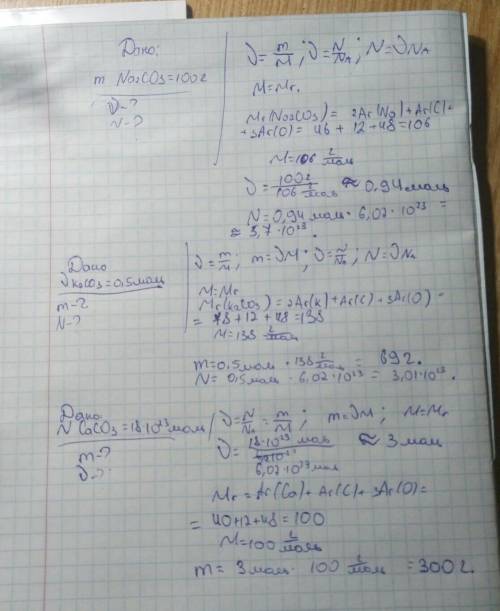 Дано:
m Na2CO3=100г
ν-?
N-?
ν=m/M; ν=N/NA; N=νNA
M=Mr.
Mr(Na2CO3)= 2Ar(Na)+Ar(C)+
+3Ar(O)= 46 + 12 +48=106
M=106 г/моль
ν=100г/106 г/моль ≈ 0,94моль
N=0,94 моль· 6,02·10²³ =
≈ 5,7·10²³.
Дано
νK2CO3=0,5моль
m-?
N-?
ν=m/M; m=νM; ν=N/NA; N=νNA
M=Mr
Mr(K2CO3)=2Ar(K)+Ar(C)+3Ar(O)=
= 78+12+48=138
M=138 г/моль
m=0,5моль · 138 г/моль = 69г.
N= 0,5моль · 6,02·10²³ = 3,01·10²³.
Дано:
N CaCO3=18·10²³моль
m-?
ν-?
ν=N/NA=m/M; m=νM; M=Mr
ν= 18·10²³ моль/6,02·10²³моль ≈ 3моль
Mr=Ar(Ca)+Ar(C)+3Ar(O)=
= 40+12+48=100
M=100 г/моль
m= 3моль· 100 г/моль =300г.